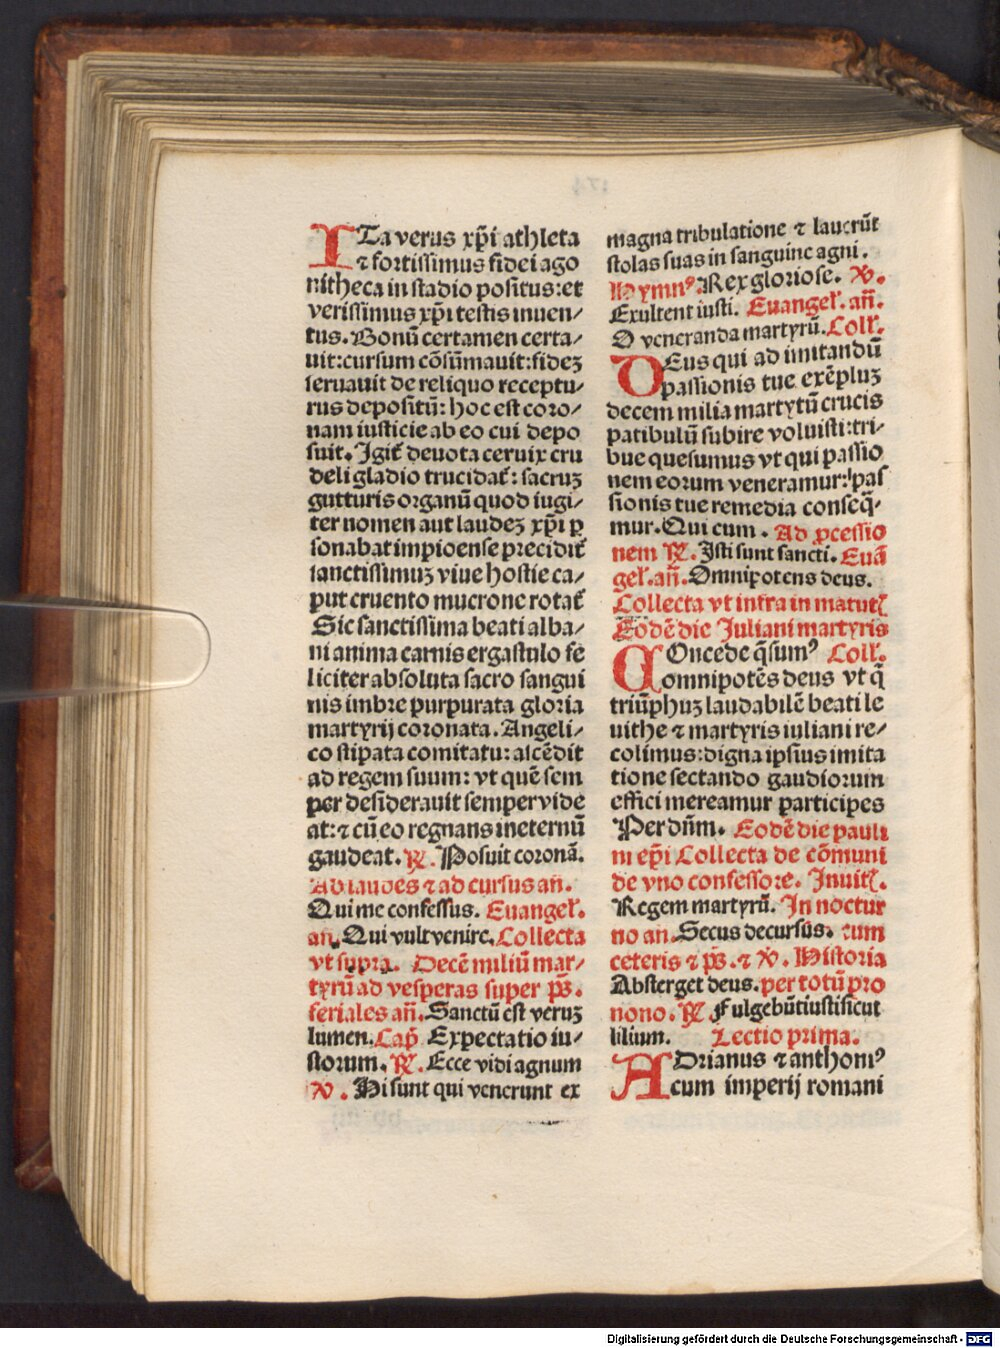 ITa verus xp̄i athleta
⁊ fortissimus fidei ago
nitheca in stadio positus: et
verissimus xp̄i testis inuen/
tus. Bonū certamen certa/
uit: cursum cōsūmauit: fideꝫ
seruauit de reliquo receptu/
rus depositū: hoc est coro/
nam iusticie ab eo cui depo
suit. Igit᷑ deuota ceruix cru
deli gladio trucidat᷑: sacruꝫ
gutturis organū quod iugi/
ter nomen aut laudeꝫ xp̄i ꝑ
sonabat impio ense precidit᷑
sanctissimuꝫ viue hostie ca/
put cruento mucrone rotat᷑
Sic sanctissima beati alba/
ni anima carnis ergastulo fe
liciter absoluta sacro sangui
nis imbre purpurata gloria
martyrij coronata. Angeli/
co stipata comitatu: ascēdit
ad regem suum: vt quē sem
per desiderauit semper vide
at: ⁊ cū eo regnans ineternū
gaudeat. ℟. Posuit coronā.
Ad laudes ⁊ ad cursus an̄.
Qui me confessus. Euangel̓.
an̄. Qui vult venire. Collecta
vt supra. Decē miliū mar/
tyrū ad vesperas super p̄s.
feriales an̄. Sanctū est veruꝫ
lumen. Cap̄. Expectatio iu/
storum. ℟. Ecce vidi agnum
℣. Hi sunt qui venerunt ex
magna tribulatione ⁊ lauerūt
stolas suas in sanguine agni.
Hymnꝰ. Rex gloriose. ℣.
Exultent iusti. Euangel̓. an̄.
O veneranda martyrū. Coll̓.
DEus qui ad imitandū
passionis tue exēpluꝫ
decem milia martyrū crucis
patibulū subire voluisti: tri/
bue quesumus vt qui passio
nem eorum veneramur: pas
sionis tue remedia conseq̄/
mur. Qui cum. Ad ꝓcessio
nem ℟. Isti sunt sancti. Euā
gel̓. an̄. Omnipotens deus.
Collecta vt infra in matut᷑.
Eodē die Juliani martyris
COncede q̄sumꝰ Coll̓.
omnipotēs deus vt q̄
triūphuꝫ laudabilē beati le
uithe ⁊ martyris iuliani re/
colimus: digna ipsius imita
tione sectando gaudiorum
effici mereamur participes
Per dn̄m. Eodē die pauli
ni ep̄i Collecta de cōmuni
de vno confessore. Inuit᷑.
Regem martyrū. In noctur
no an̄. Secus decursus. cum
ceteris ⁊ p̄s. ⁊ ℣. Historia
Absterget deus. per totū pro
nono. ℟ Fulgebūt iusti sicut
lilium. Lectio prima.
ADrianus ⁊ anthoniꝰ
cum imperij romani
Digitalisierung gefördert durch die Deutsche Forschungsgemeinschaft - DFG